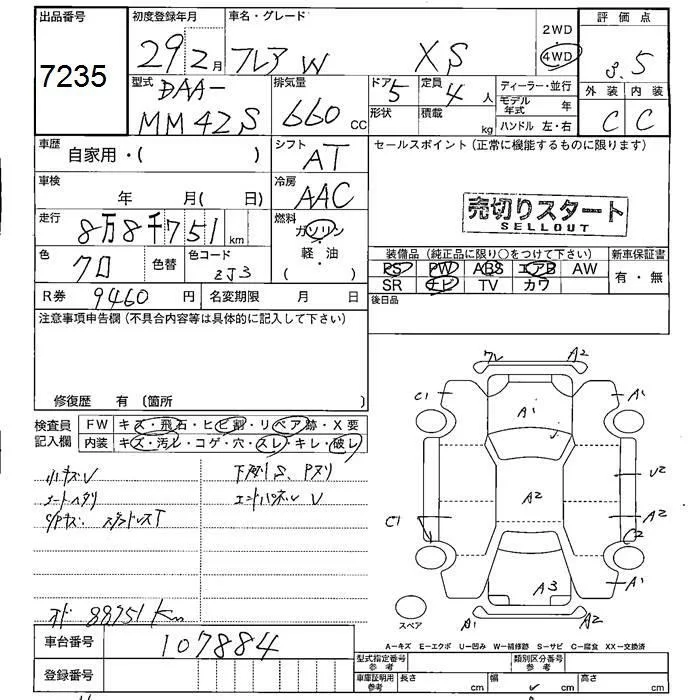 出品番号 初度登録年月 車名・グレード 評価点
7235 29年2月 フレア W XS 2WD 4WD 3.5
外装 内装
C C
型式 DAA-
MM42S
排気量 660 CC
ドア 5 定員 4 人
形状 積載 kg
ディーラー・並行
モデル年式 年
ハンドル 左・右
車歴 自家用・( )
シフト AT
セールスポイント(正常に機能するものに限ります)
車検 年 月( 日)
冷房 AAC
売切りスタート
SELLOUT
走行 8万8千751 km
燃料 ガソリン
軽・油
( )
色 クロ 色替 色コード ZJ3
装備品(純正品に限り○をつけて下さい) 新車保証書
PS PW ABS エアB AW 有・無
SR ナビ TV カワ
R券 9460円 名変期限 月 日
後日品
注意事項申告欄(不具合内容等は具体的に記入して下さい)
修復歴 有 (箇所 )
検査員記入欄 FW キズ・飛石・ヒビ割・リペア跡・X要
内装 キズ・汚レ・コゲ・穴・スレ・キレ・破レ
小キズV
シートヘタリ
エンドパネル V
オド 88751 Km
車台番号 107884
登録番号
A2
C1 A1
A1
U2
A2
A2
C1 2
A3 A1
スペア A1 A2
A−キズ E−エクボ U−凹み W−補修跡 S−サビ C−腐食 XX−交換済
型式指定番号 参考 類別区分番号 参考
車庫証明用 参考 長さ cm 幅 cm 高さ cm